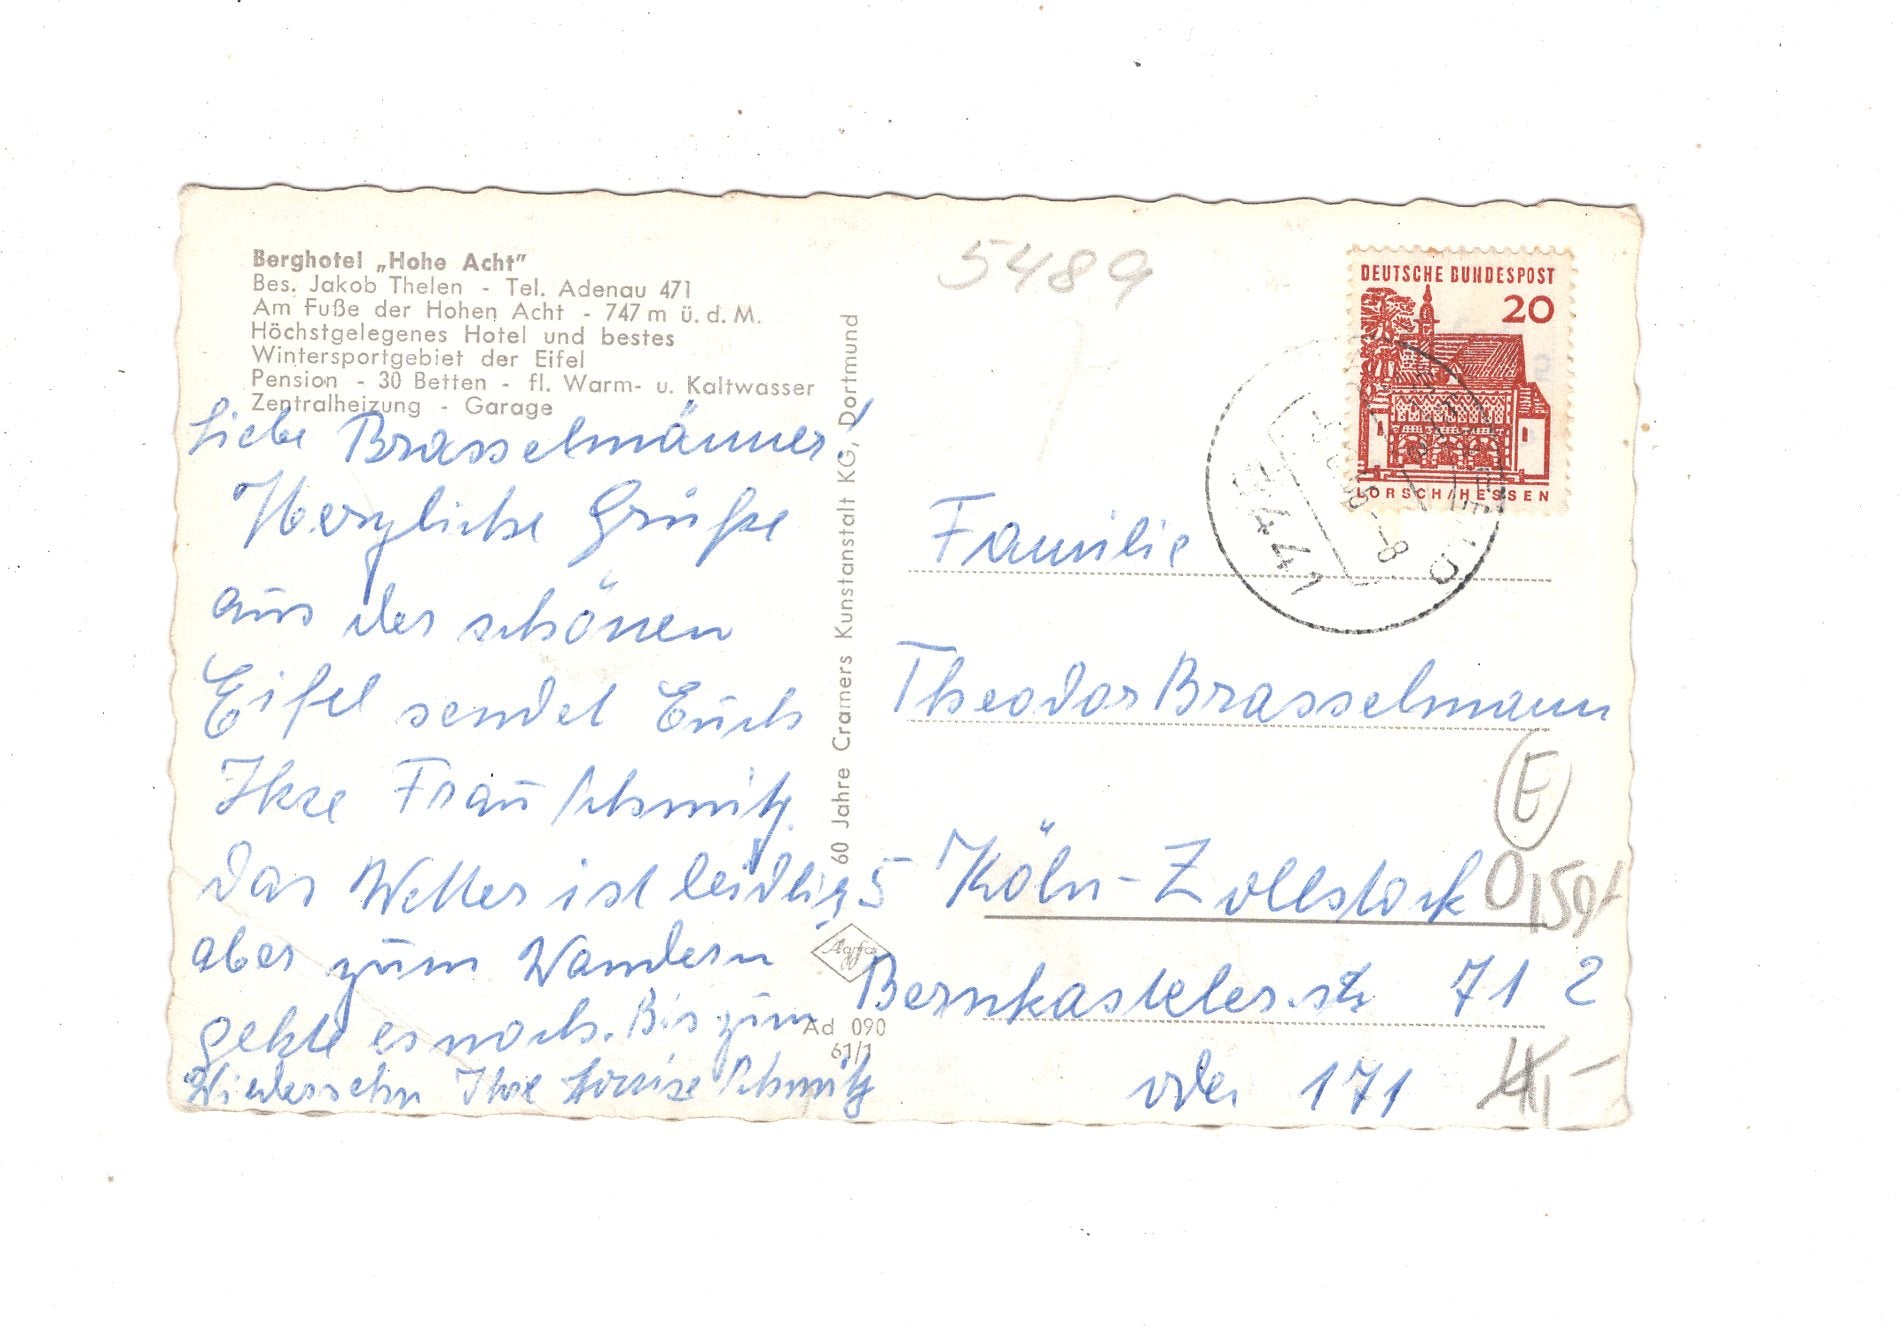 Berghotel „Hohe Acht"
Bes. Jakob Thelen - Tel. Adenau 471
Am Fuße der Hohen Acht - 747 m ü. d. M.
Höchstgelegenes Hotel und bestes
Wintersportgebiet der Eifel
Pension - 30 Betten - fl. Warm- u. Kaltwasser
Zentralheizung - Garage
Liebe Brasselmänner!
Herzliche Grüße
aus der schönen
Eifel sendet Euch
Ihre Frau Schmitz.
Das Wetter ist leidlig,
aber zum Wandern
gehte es noch. Bis zum
Wiedersehn Ihre Louise Schmitz
60 Jahre Cramers Kunstanstalt KG, Dortmund
Agfa
Ad 090
61/1
5489
DEUTSCHE BUNDESPOST
20
LORSCH/HESSEN
5441
-8
Familie
Theodor Brasselmann
E
5 Köln-Zollstock
Bernkasteler str 71 2
oder 171